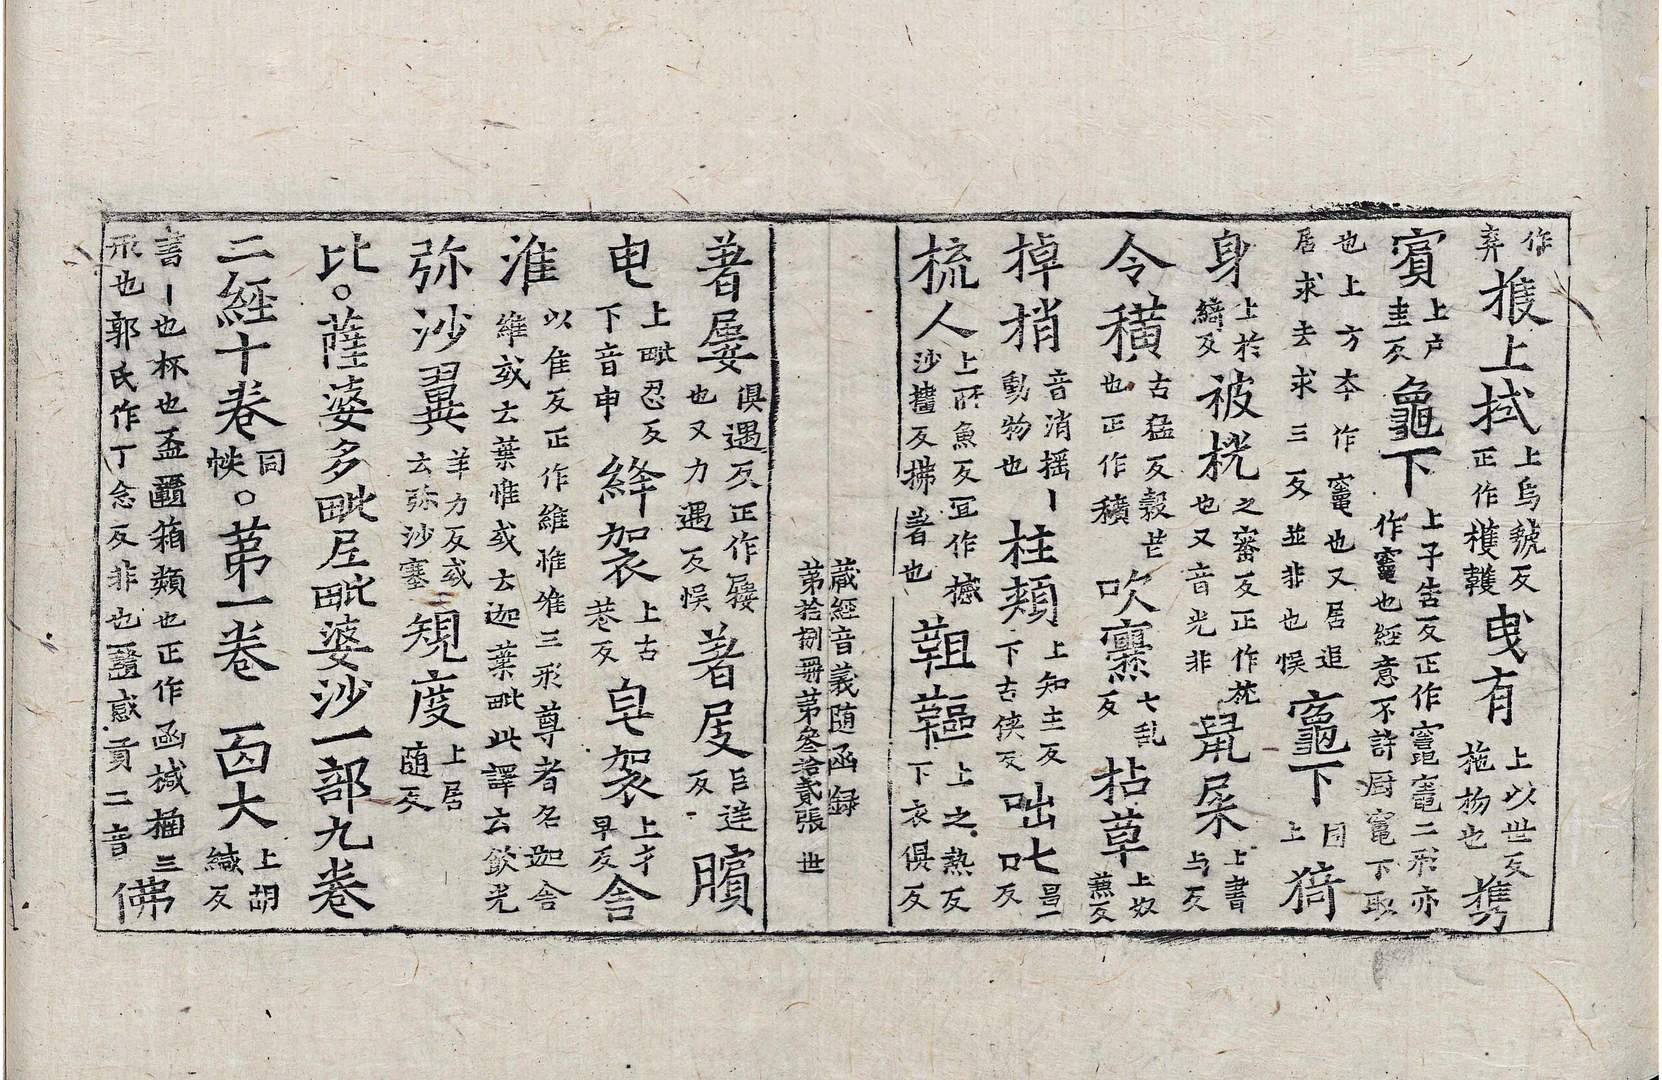 作弃推上拭上烏號反正作擭韄曳有上以世反施物也攜
賔上户圭反龜下上子告反正作竈竃二形亦作竈也經意不許厨竃下取
也上方本作竃也又居追居求去求三反並非也悮龜下同上猗
身上於綺反被桄之審反正作枕也又音光非鼠屎上書与反
令穬古猛反穀芒也正作穬吹㸑七乱反拈草上奴蒹反
掉捎音消摇丨動物也柱頬上知主反下古侠反咄七昌一反
梳人上所魚反宜作㨫沙櫨反拂著也䩢鞰上之熱反下衣俱反
藏經音義随函録
第拾捌冊第叄拾貳張 世
著屢俱遇反正作屨也又力遇反悮著屐巨逆反臏
申上毗忍反下音申絳袈上古巷反皂袈上才早反舎
淮以隹反正作維惟唯三形尊者名迦舎維或云葉惟或云迦葉毗此譯云飲光
弥沙翼羊力反或云弥沙塞規度上居随反
比。薩婆多毗尼毗婆沙一部九巻
二經十巻同帙。第一巻 函大上胡緘反
書丨也杯也盃匱箱類也正作函椷㮀三
形也郭氏作丁念反非也又感貢二音佛